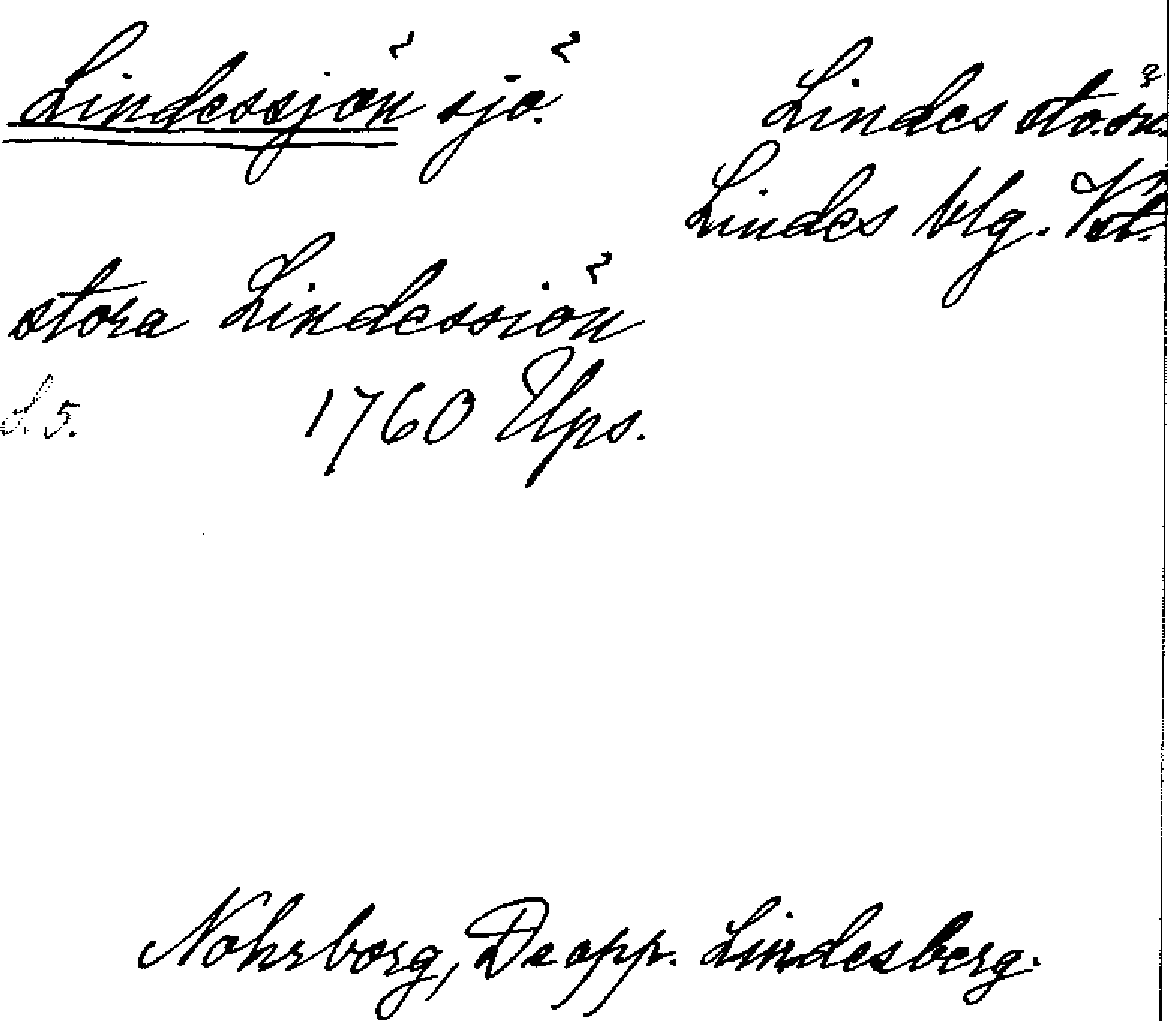 Lindessjön sjö.
Lindes stads
Lindes blg. Vstm.
stora Lindessiön
S. 5. 1760 Ups.
Nohrborg, De opp. Lindesberg.